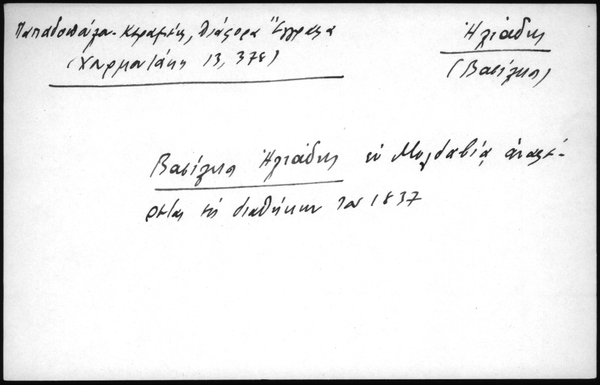 Παπαδοπούλου-Κεραμέως, Διάφορα Ἔγγραφα
(Χαρμονίδης 13, 378)
Ἠλιάδης
(Βασίλειος)
Βασίλειος Ἠλιάδης ἐν Μολδαβίᾳ ἀναφέ-
ρεται ἐν διαθήκῃ τοῦ 1837